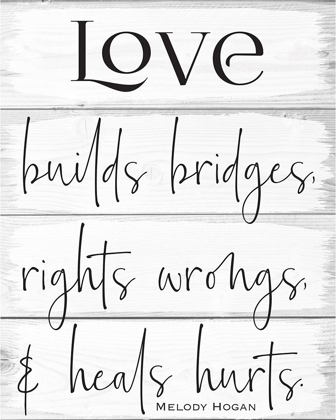 Love
builds bridges,
rights wrongs,
& heals hurts.
MELODY HOGAN